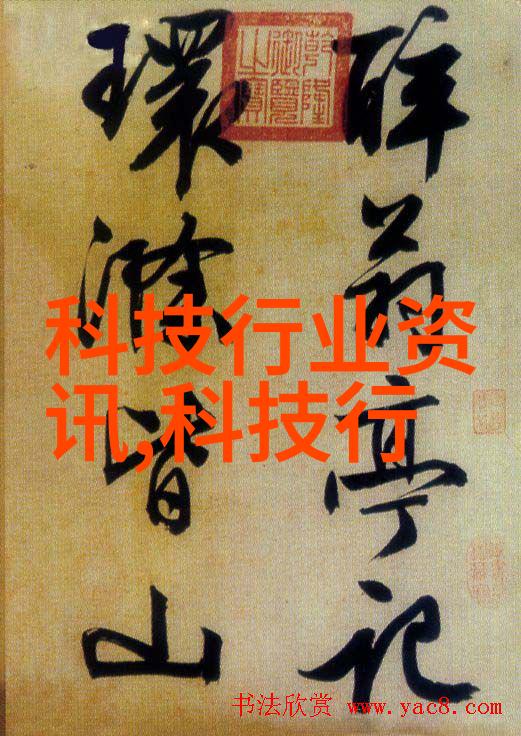 醉翁亭記
環滁皆山
乾隆
御覽
之寶
科技行业资
讯,科技行
书法欣赏 www.yac8.com